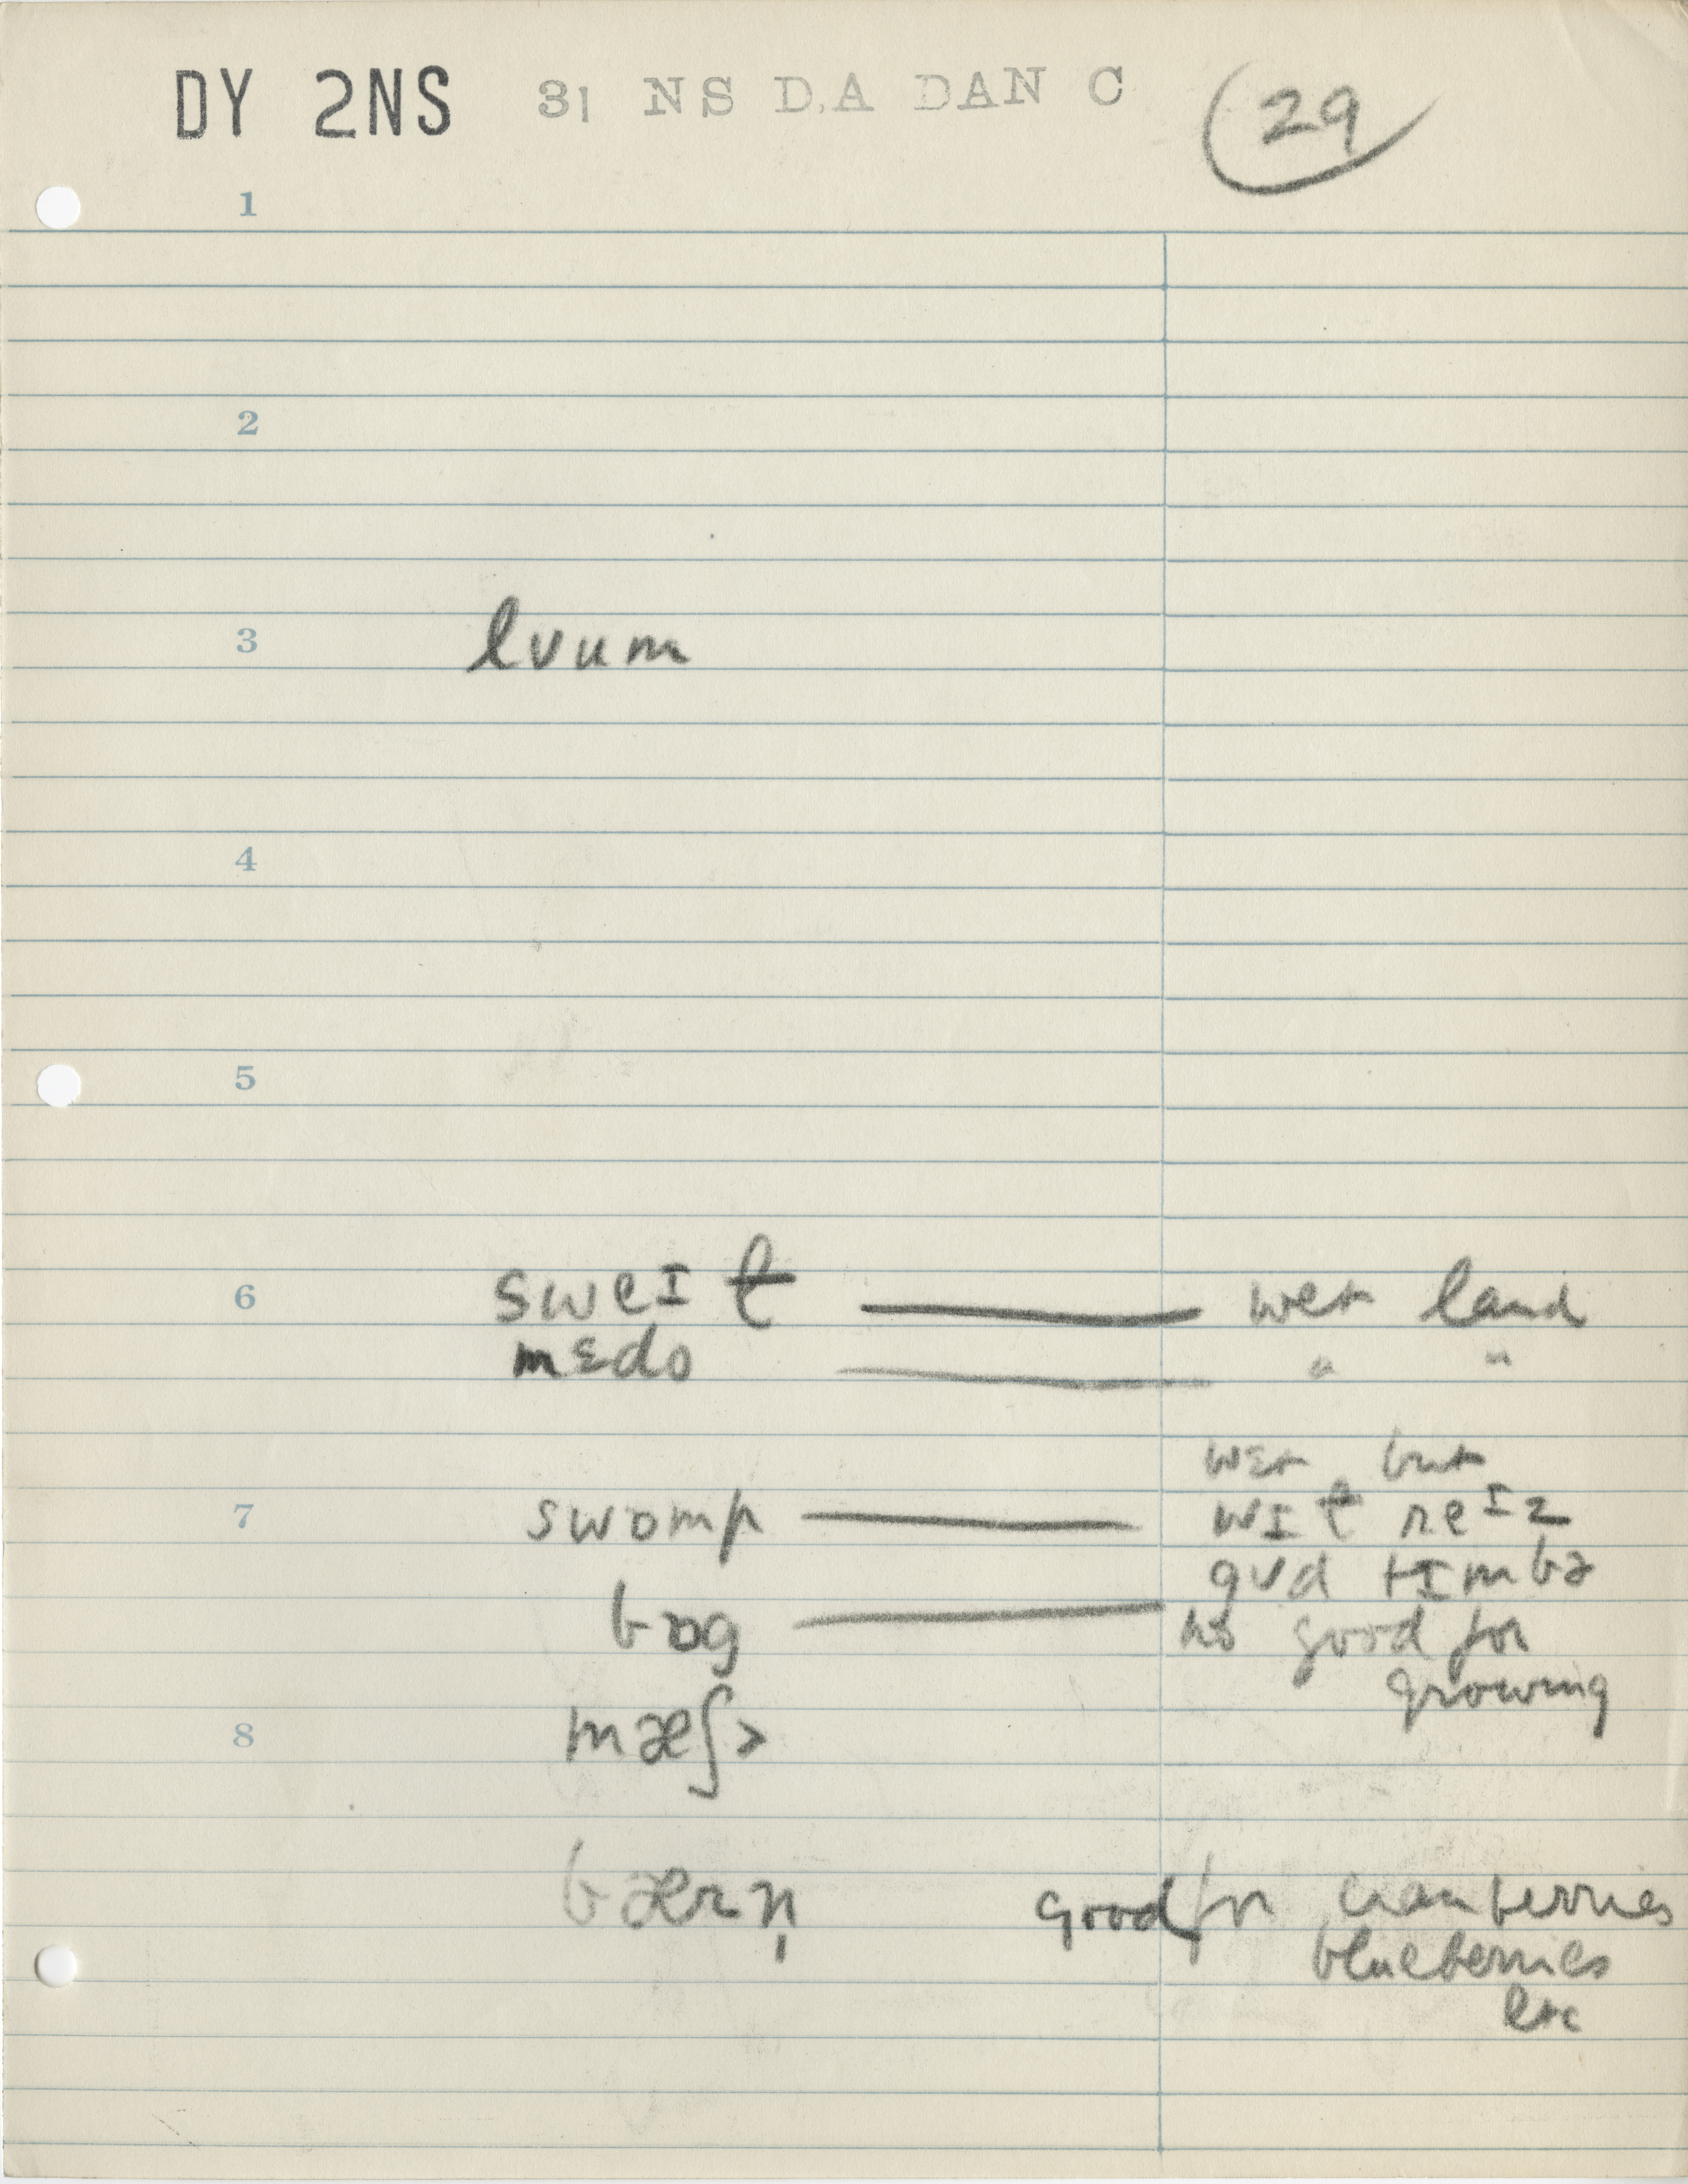 DY 2NS 31 NS D.A DAN C 29
1
2
3 lʊum
4
5
6 sweɪt — wet land
mɛdo — " "
wɛt but
7 swɒmp — wɪt reɪz
gʊd tɪmbə
bɒg — no good for
growing
8 mæʃ>
bærn̩ good for cranberries
blueberries
etc